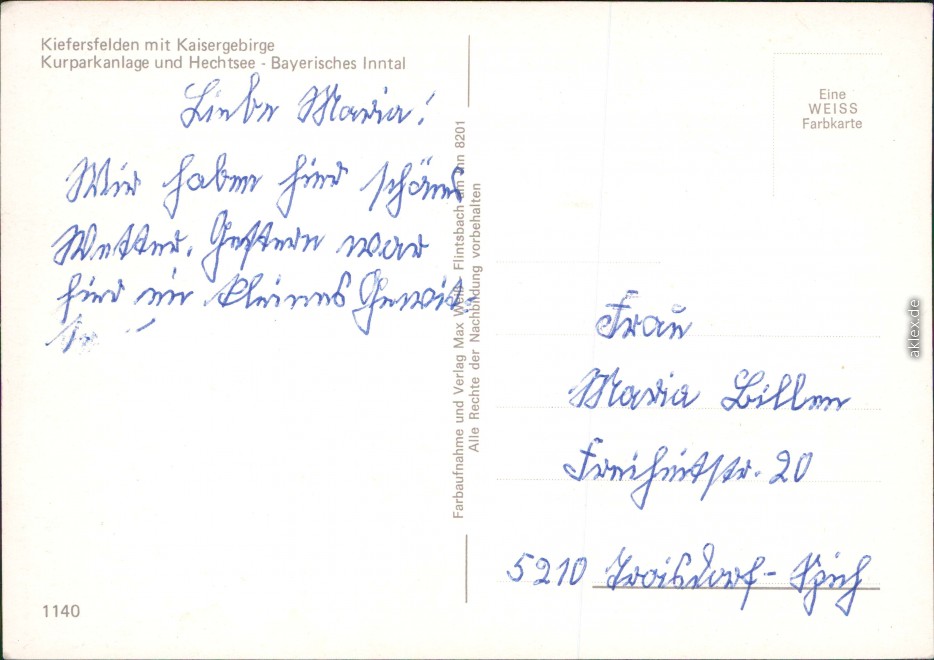 Kiefersfelden mit Kaisergebirge
Kurparkanlage und Hechtsee - Bayerisches Inntal
Liebe Maria!
Wir haben hier schönes
Wetter. Gestern war
hier ein kleines Gewit-
Farbaufnahme und Verlag Max Weiß Flintsbach am Inn 8201
Alle Rechte der Nachbildung vorbehalten
Eine
WEISS
Farbkarte
Frau
Maria Billen
Freiheitstr. 20
5210 Troisdorf - Spich
1140
aklex.de